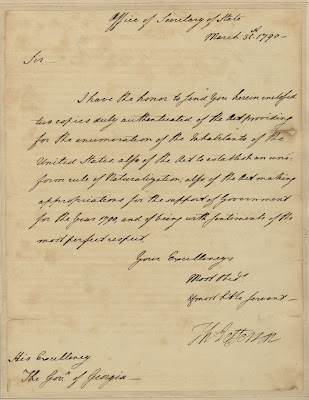 Office of Secretary of State
March 31st 1790—
Sir—
I have the honor to send you herein enclosed
two copies duly authenticated of the Act providing
for the enumeration of the Inhabitants of the
United States, also of the Act to establish an uni-
form rule of Naturalization, also of the Act making
appropriations for the support of Government
for the Year 1790, and of being with sentiments of the
most perfect respect
Your Excellency's
Most Obedt
& most Hble Servant—
Th: Jefferson
His Excellency
The Govr of Georgia—